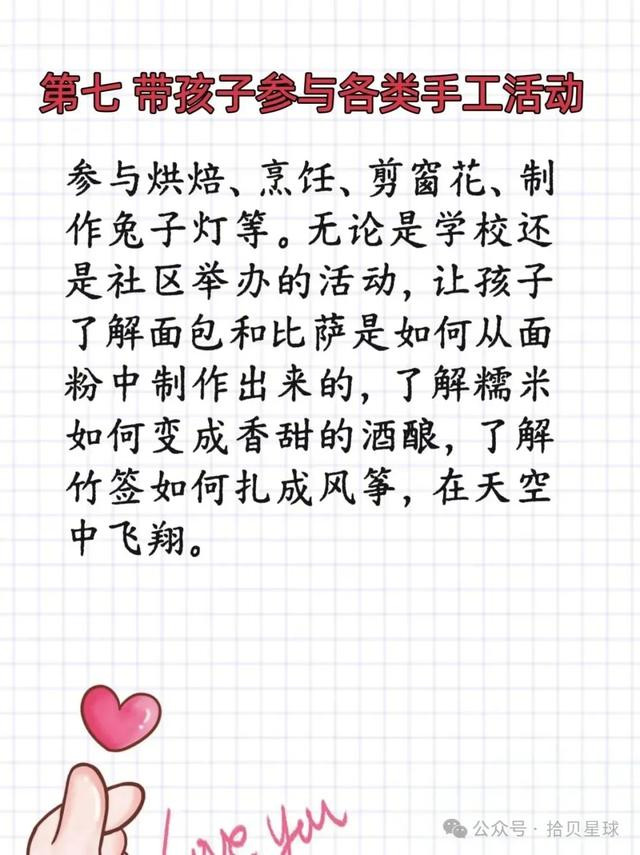 第七 带孩子参与各类手工活动
参与烘焙、烹饪、剪窗花、制
作兔子灯等。无论是学校还
是社区举办的活动，让孩子
了解面包和比萨是如何从面
粉中制作出来的，了解糯米
如何变成香甜的酒酿，了解
竹签如何扎成风筝，在天空
中飞翔。
Love You
公众号·拾贝星球